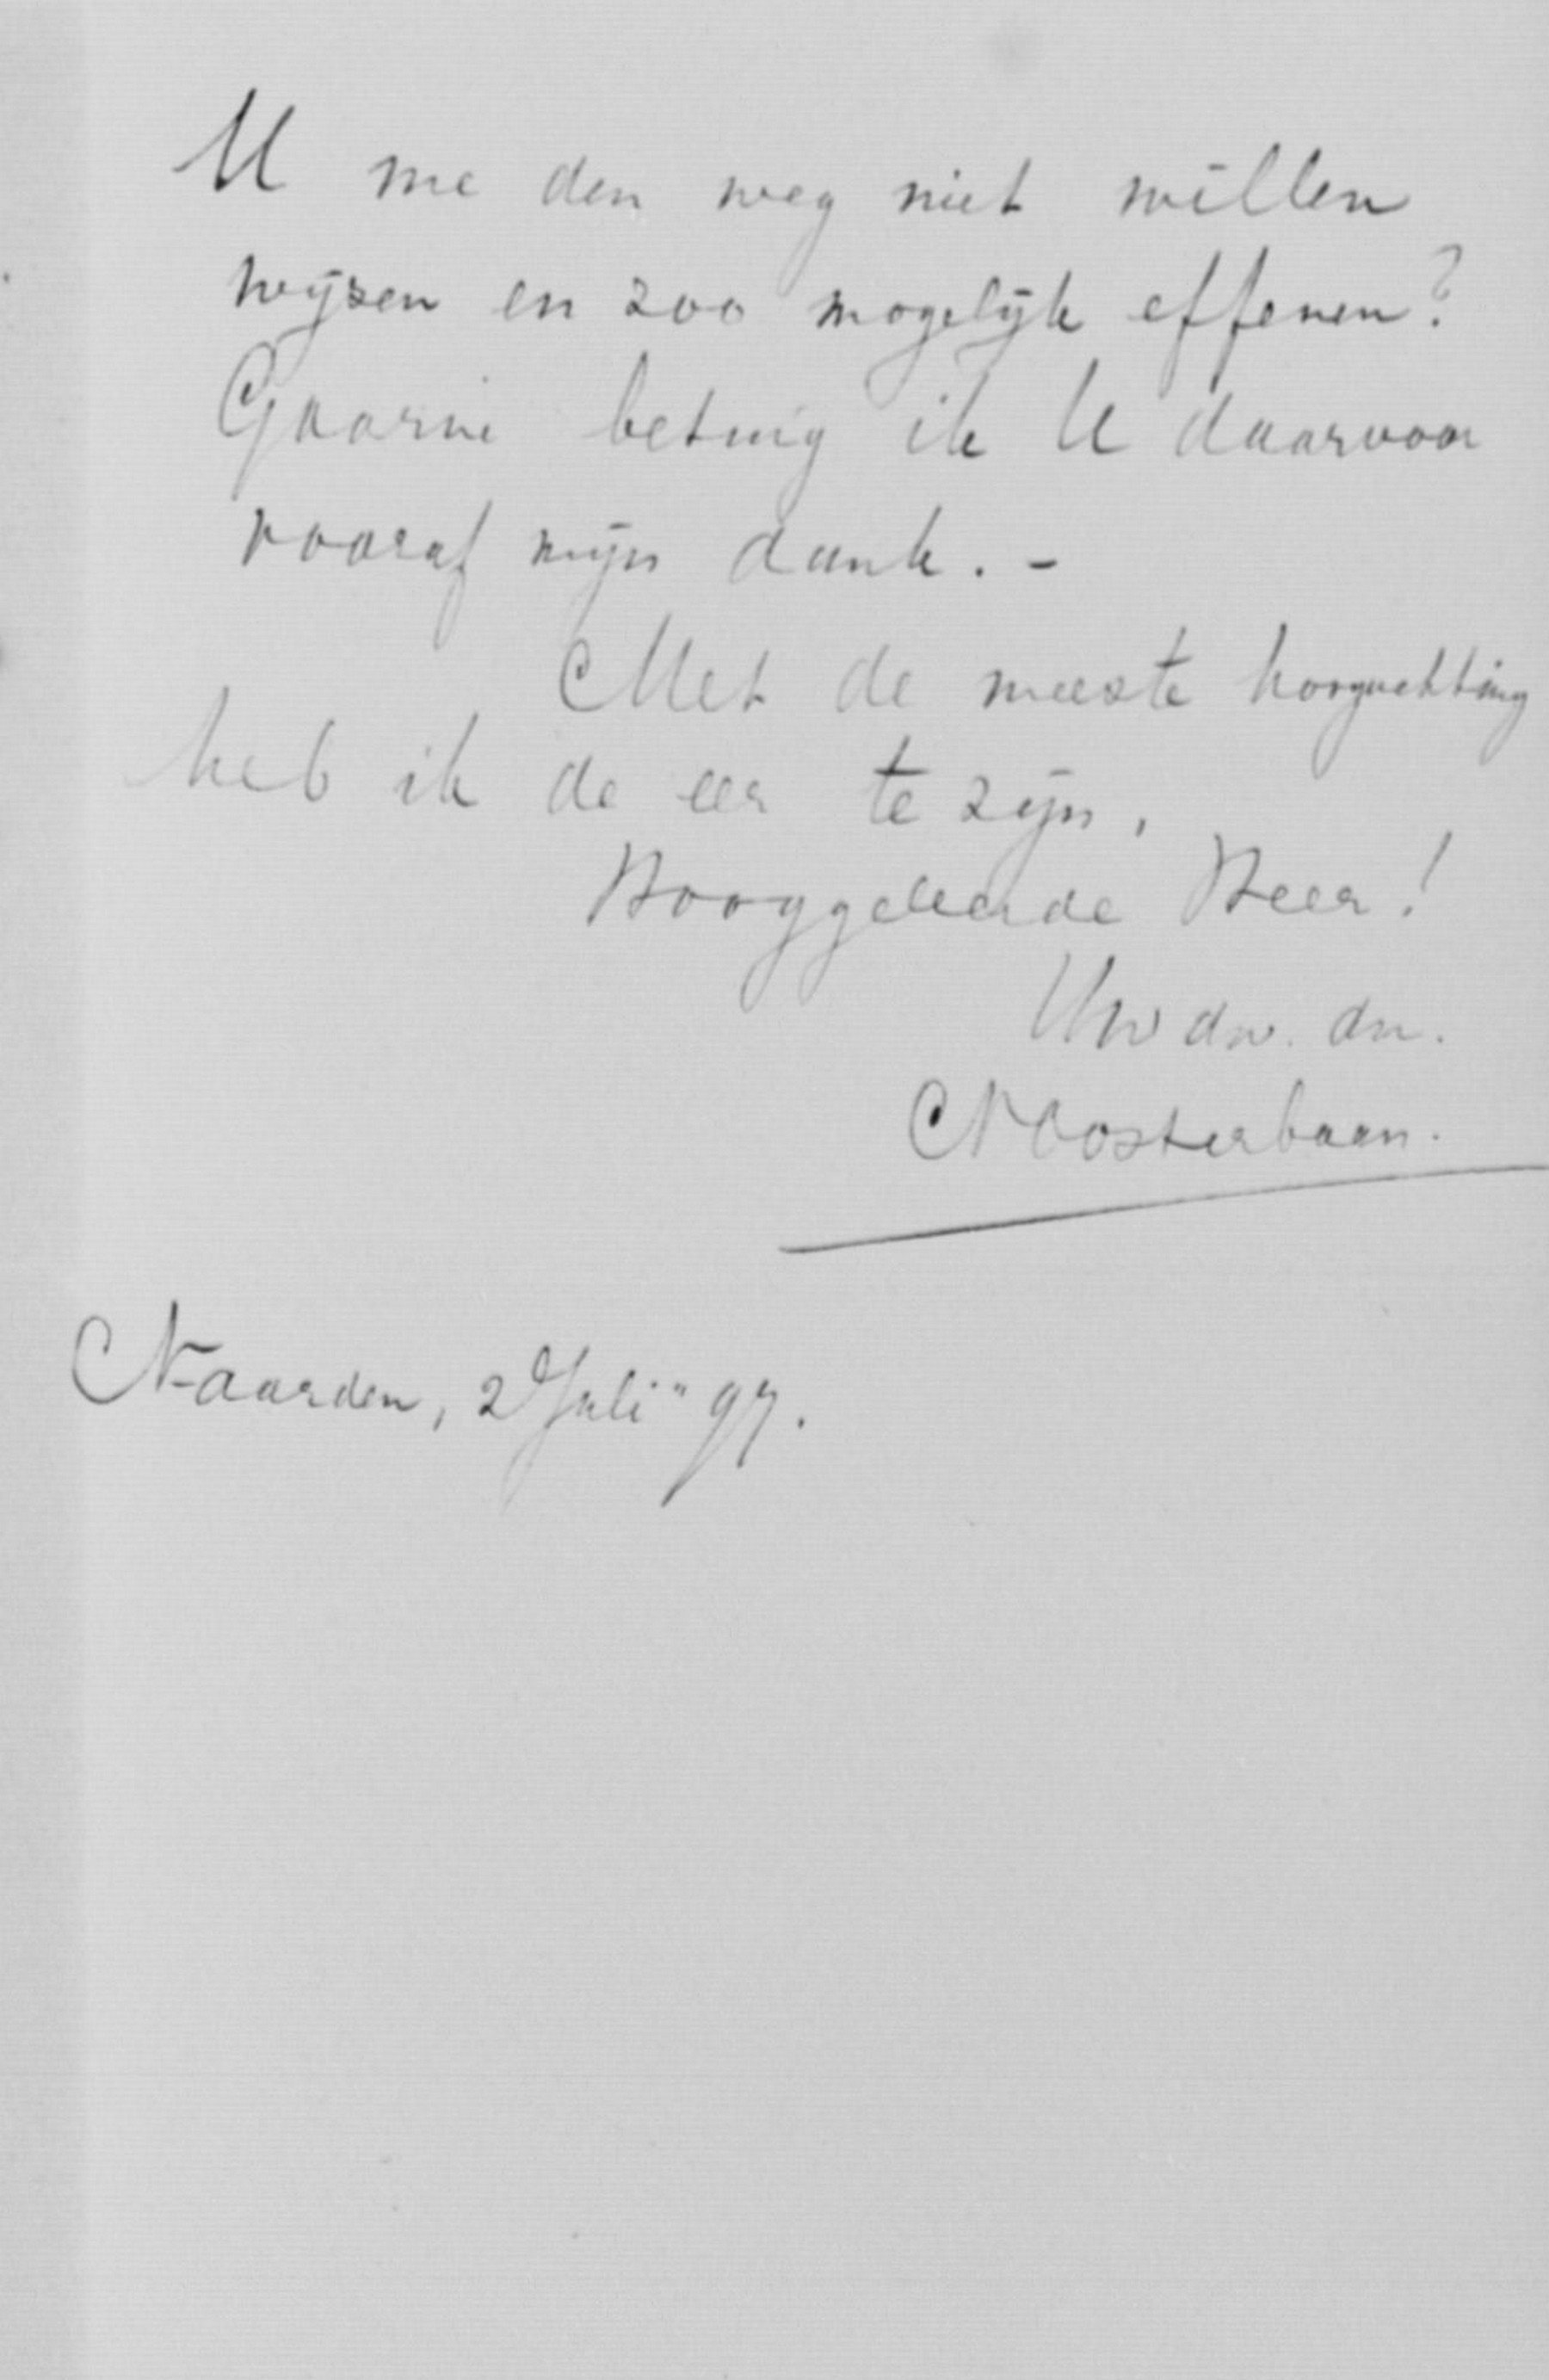 U me den weg niet willen
wijzen en zoo mogelijk effenen?
Gaarne betuig ik U daarvoor
vooraf mijn dank. –
Met de meeste hoogachting
heb ik de eer te zijn,
Hooggeleerde Heer!
Uw dw. dn.
N Oosterbaan.
Naarden, 2 Juli "97.